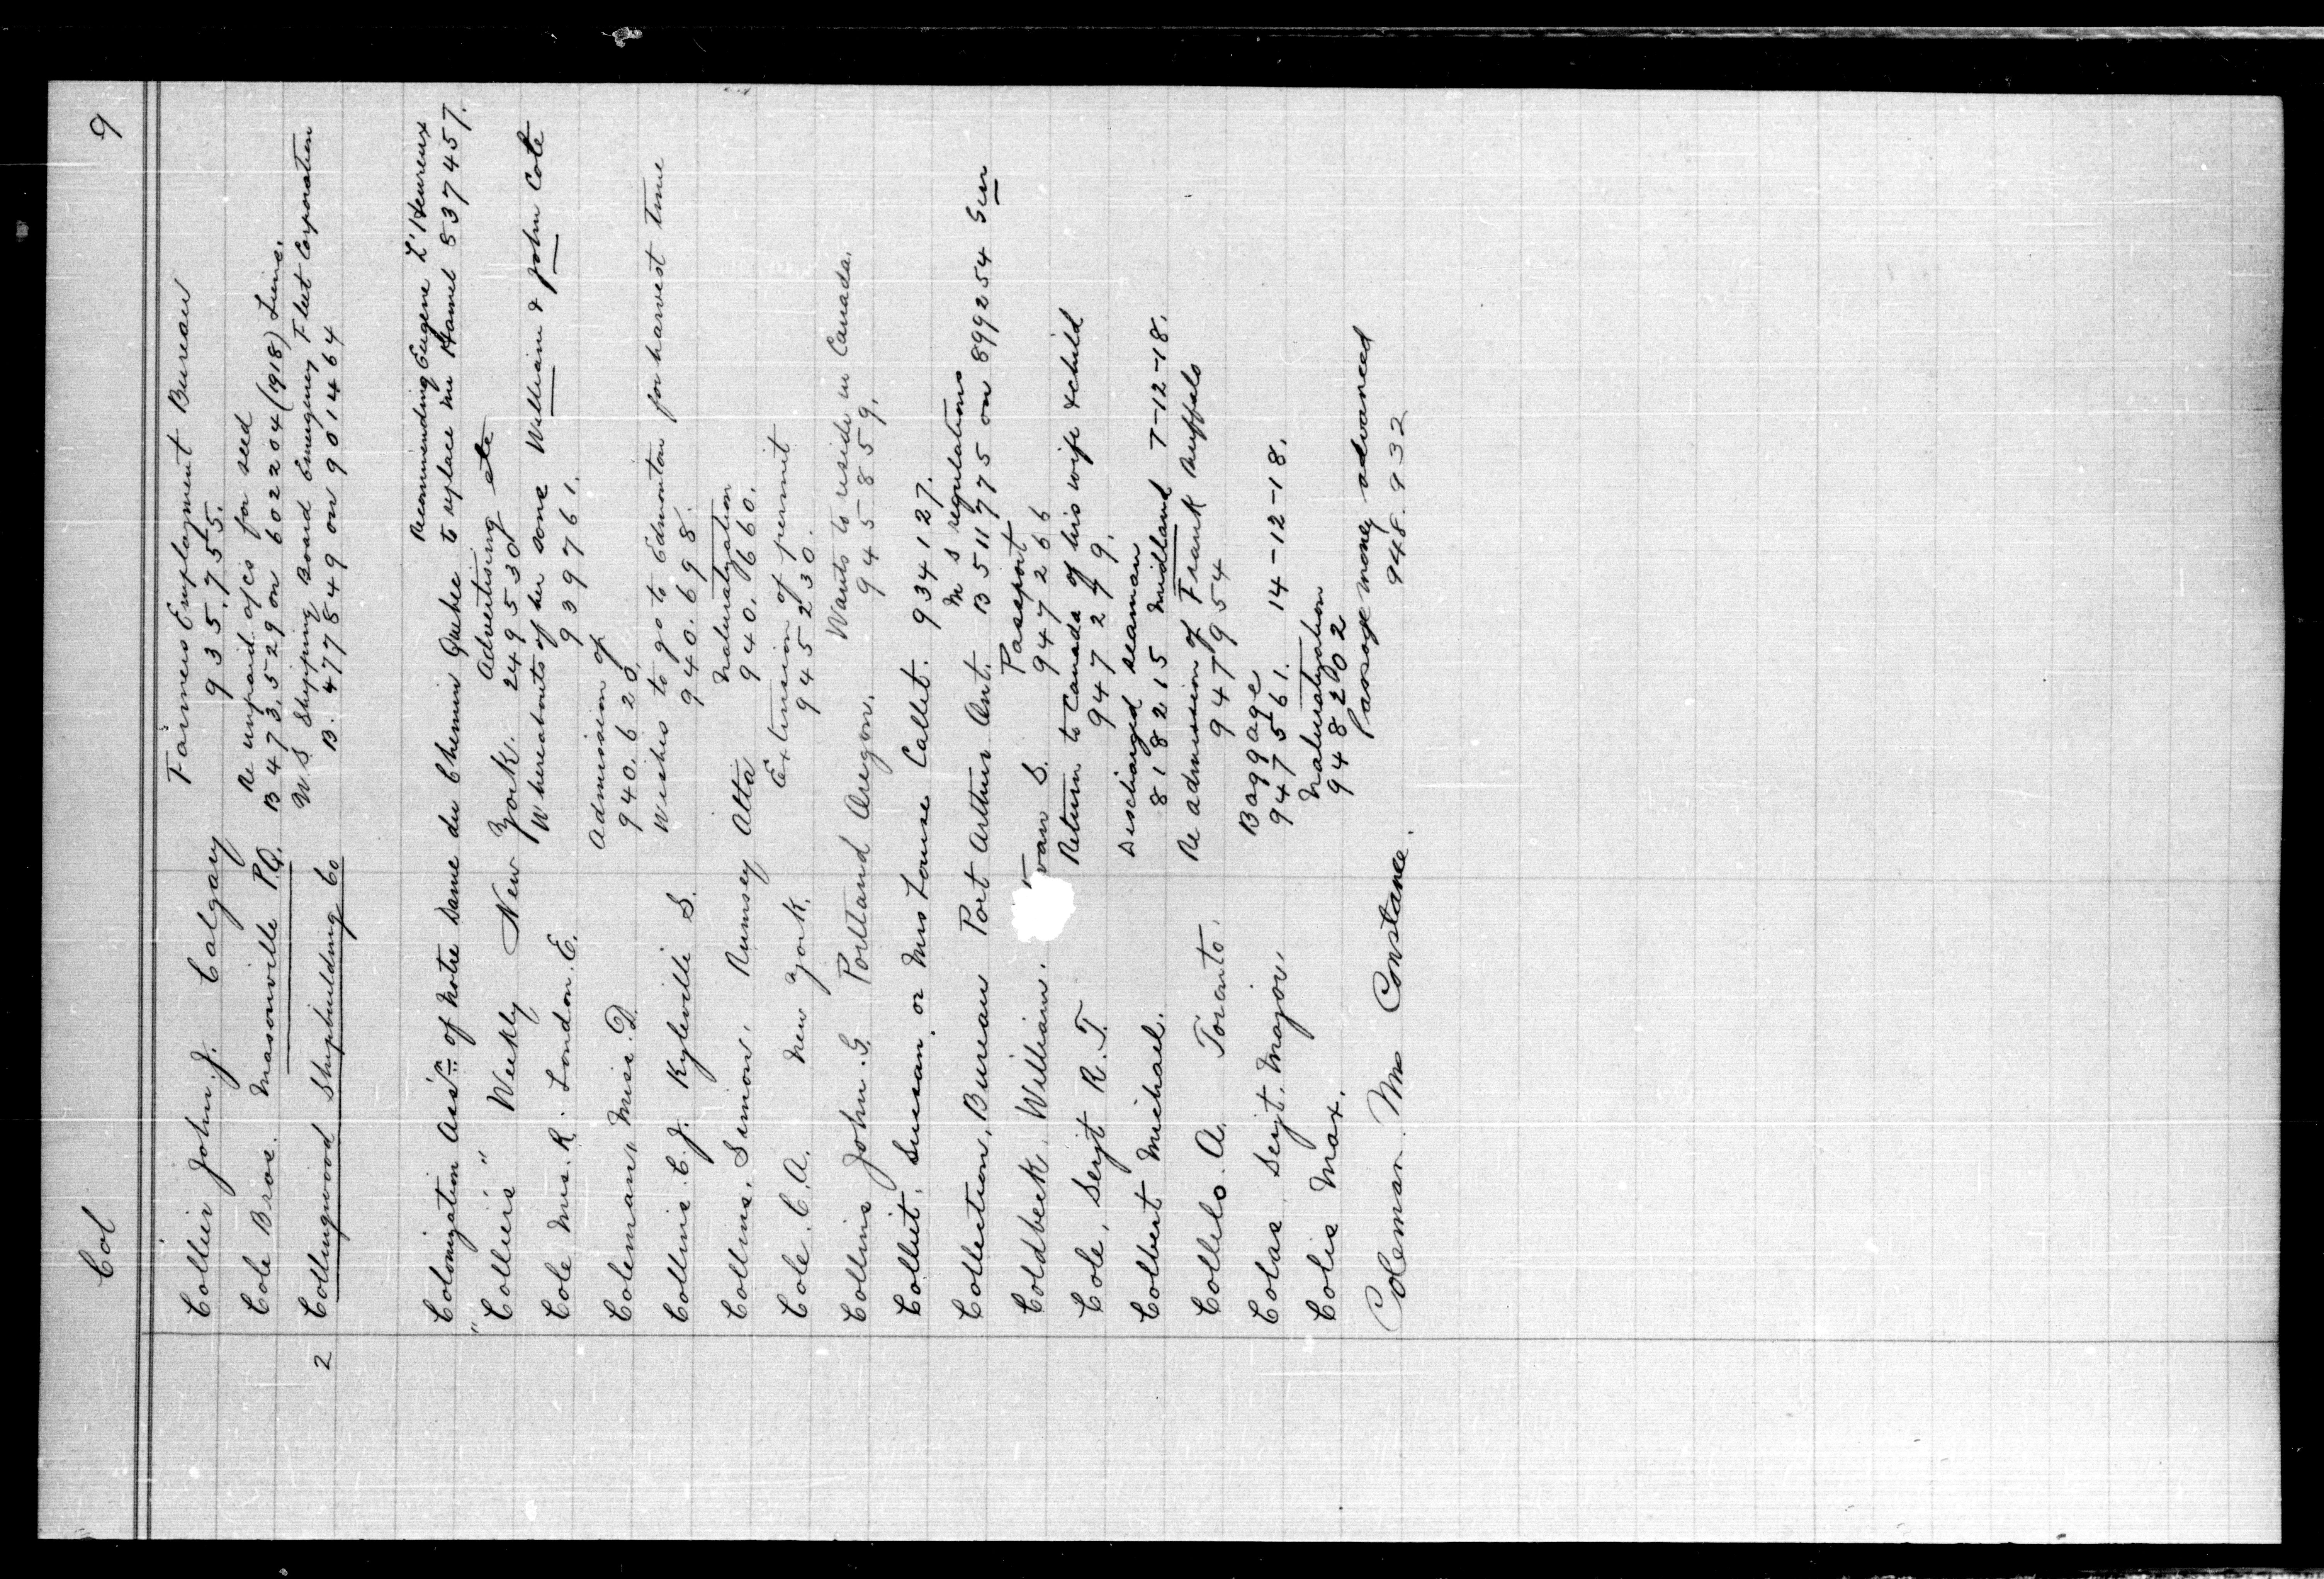 Col 9
Collier John J. Calgary Farmers Employment Bureau
935.755.
Cole Bros. Masonville P.Q. Re unpaid a/cs for seed
B 473.529 on 602204 (1918)
2 Collingwood Shipbuilding Co U.S Shipping Board Emergency Fleet Corporation
B. 477849 on 901464
Recommending Eugene L'Heureux
Colonization Ass'n of Notre Dame du Chemin Quebec to replace Mr Hamel 537457.
"Collier's" Weekly New York. Advertising etc
249530
Cole Mrs. R. London. E. Whereabouts of her sons William & John Cole
939761.
Coleman, Miss. D. Admission of
940.620.
Collins. C. J. Kyleville S. Wishes to go to Edmonton for harvest time
940.698.
Collins. Simon. Rumsey Alta Naturalization
940.660.
Cole. C. A. New York. Extension of permit
945230.
Collins John. G. Portland Oregon. Wants to reside in Canada.
945859.
Colliet. Susan. or Mrs Louise Callet. 934127.
Collection, Bureau Port Arthur Ont. M S regulations
B 511775 on 899254
Coldbeck, William. S. Passport
947266
Cole, Serjt R. T. Return to Canada of his wife & child
947279.
Colbert Michael. Discharged seaman
818215 Midland 7-12-18.
Collelo. A. Toronto. Re admission of Frank Buffalo
947954
Colas. Serjt. Major. Baggage
947561. 14-12-18.
Colis Max. Naturalization
948202
Coleman. Mrs Constance. Passage money advanced
948.932